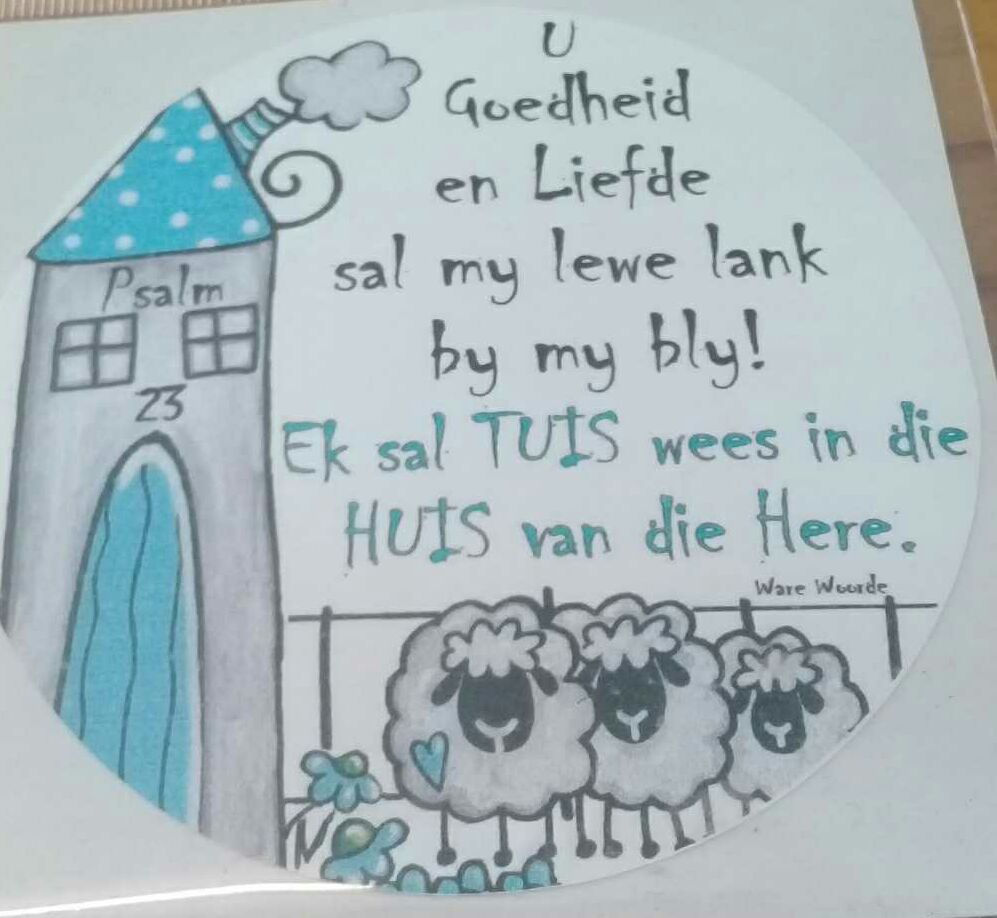 U
Goedheid
en Liefde
sal my lewe lank
by my bly!
Ek sal TUIS wees in die
HUIS van die Here.
Ware Woorde
Psalm
23